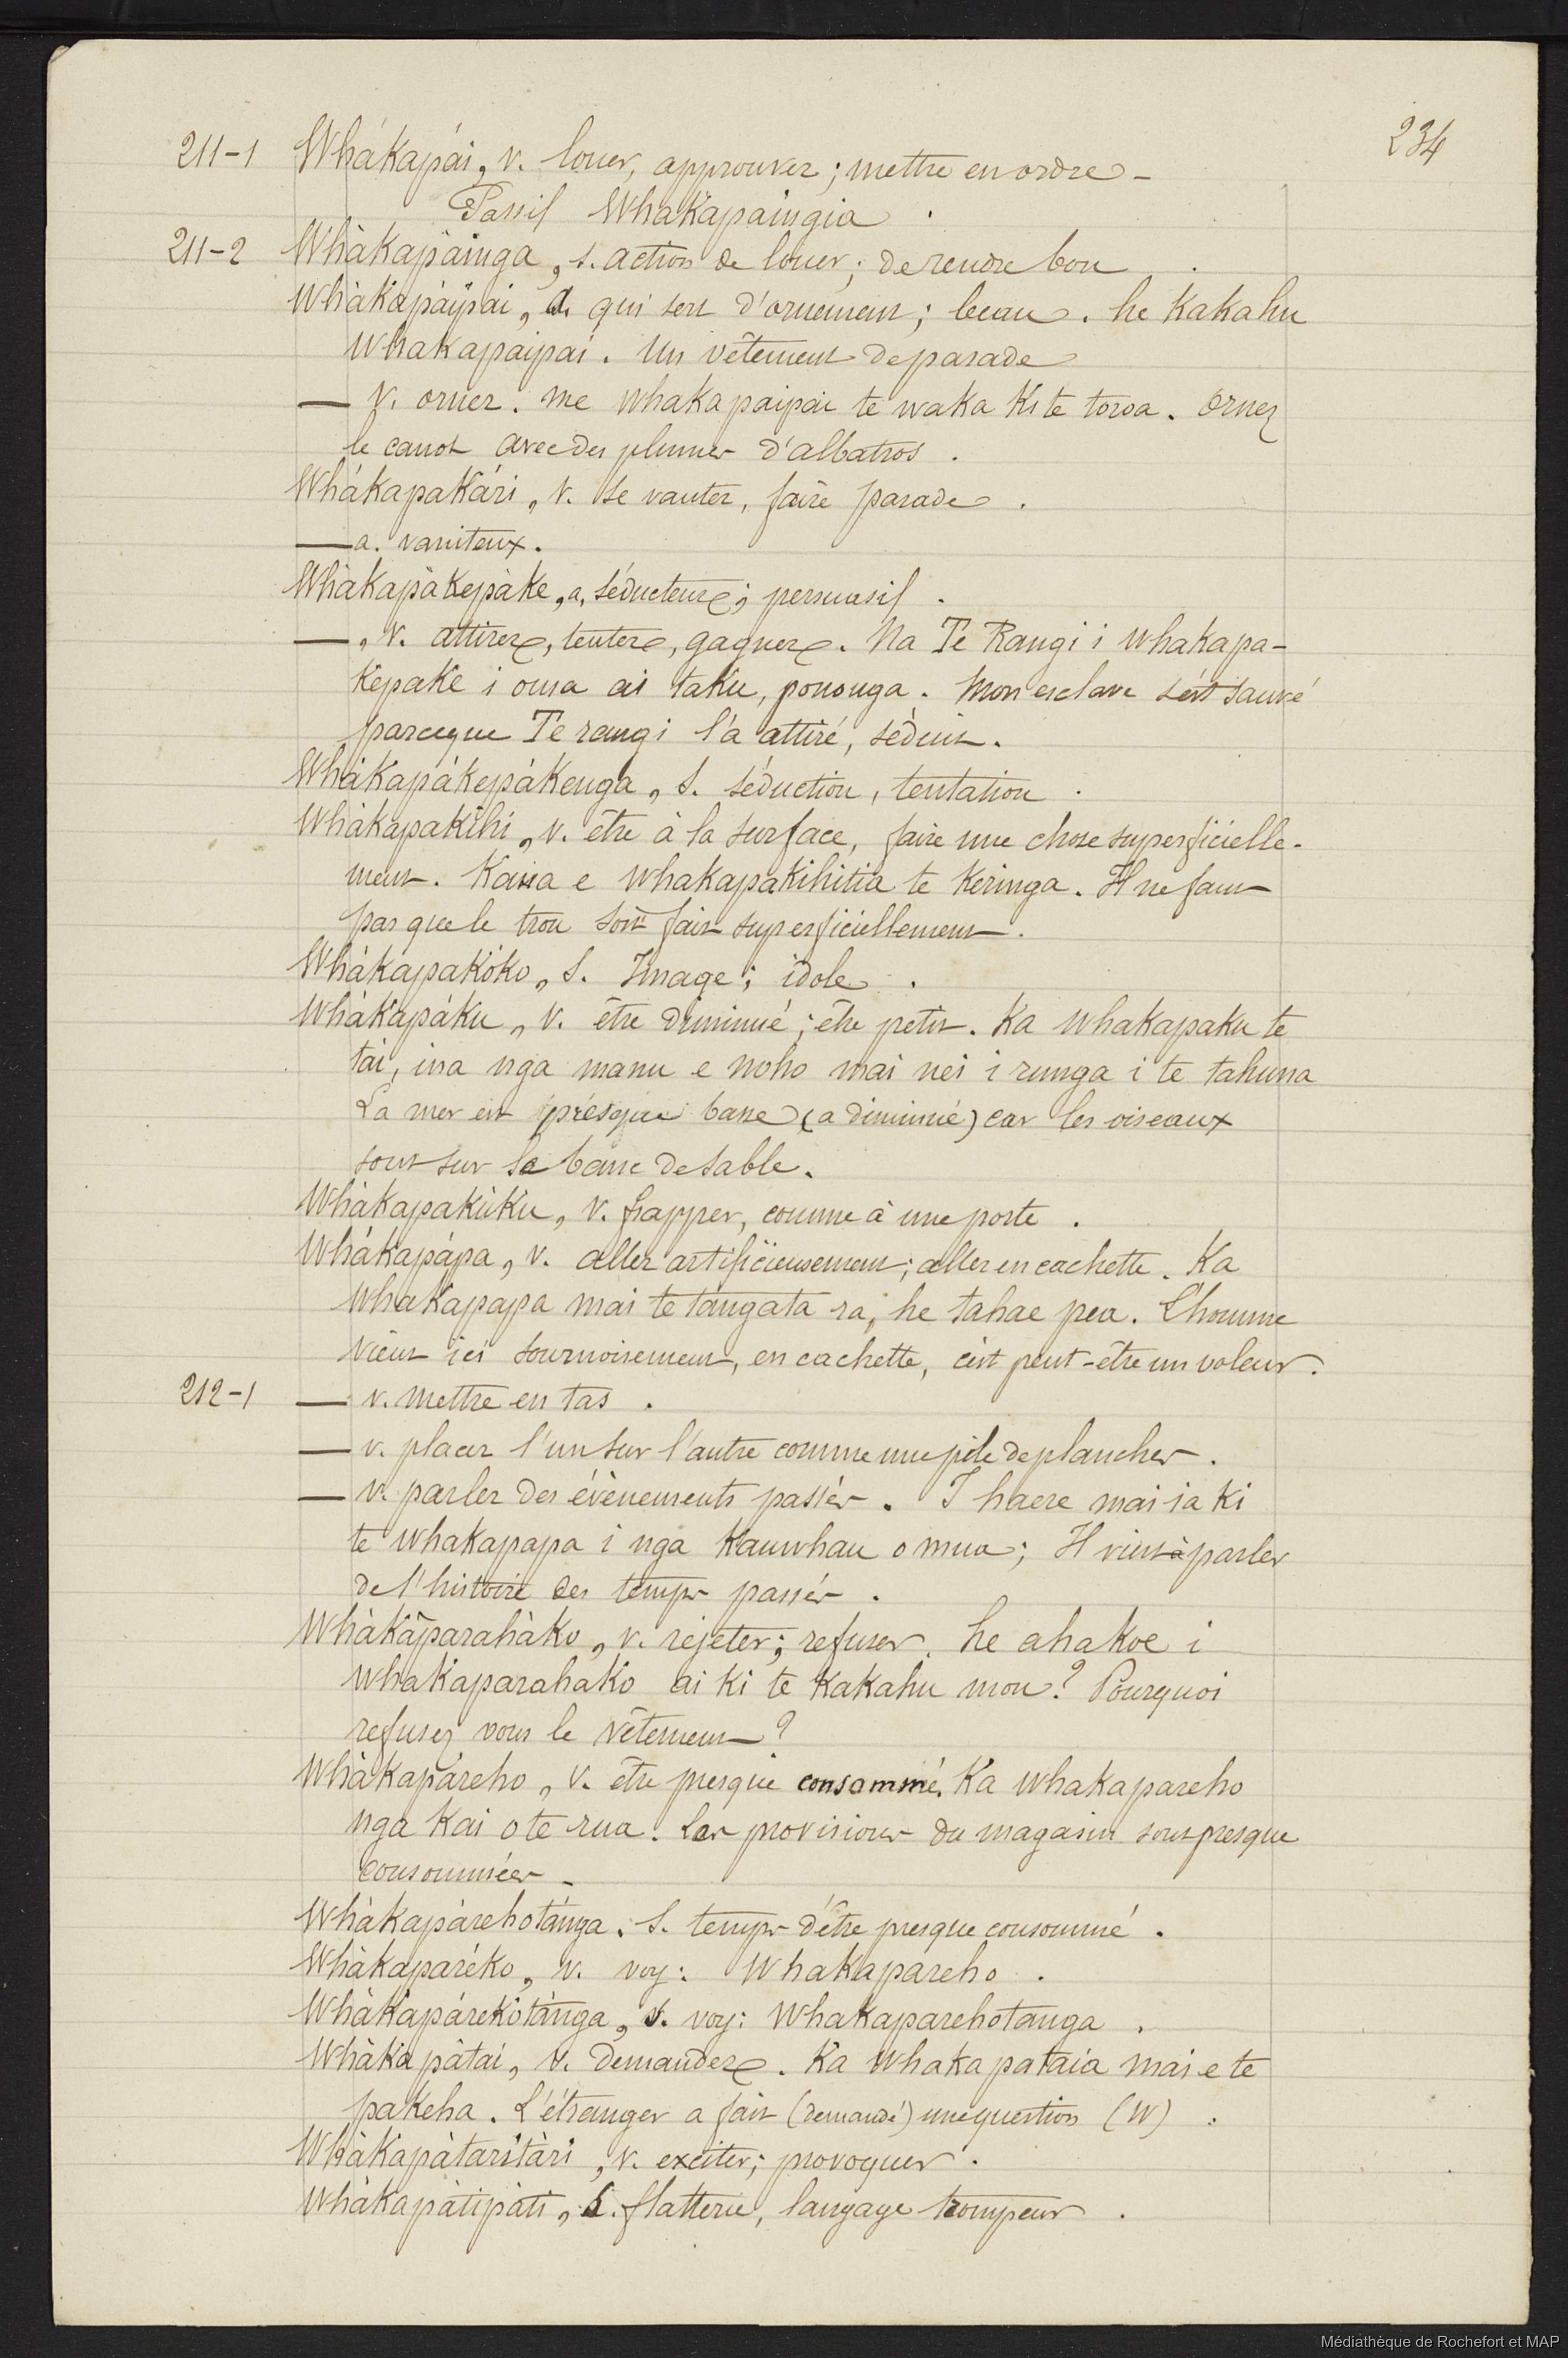 234
211-1 Whákapái, v. louer, approuver; mettre en ordre -
Passif Whakapaingia .
211-2 Whàkapàinga, s. action de louer; de rendre bon .
Whàkapàipai, a. qui sert d'ornement; beau. he Kakahu
whakapaipai. Un vêtement de parade
— v. orner. me whakapaipai te waka Ki te toroa. Ornez
le canot avec des plumes d'albatros .
Whákapakári, v. se vanter, faire parade .
— a. vaniteux.
Whàkapàkepàke, a, séducteur; persuasif .
—, v. attirer, tenter, gagner. Na Te Rangi i whakapa-
kepake i oma ai taku, pononga. Mon esclave s'est sauvé
parceque Te rangi l'a attiré, séduit.
Whàkapàkepàkenga, s. séduction, tentation .
Whàkapakihi, v. être à la surface, faire une chose superficielle-
ment. Kaua e whakapakihitia te Keringa. Il ne faut
pas que le trou soit fait superficiellement.
Whàkapakòko, s. Image; idole .
Whàkapáku, v. être diminué; être petit. Ka whakapaku te
tai, ina nga manu e noho mai nei i runga i te tahuna
La mer est presque basse (a diminué) car les oiseaux
sont sur le banc de sable.
Whàkapakùku, v. frapper, comme à une porte .
Whákapápa, v. aller artificieusement; aller en cachette. Ka
whakapapa mai te tangata ra, he tahae pea. L'homme
vient ici sournoisement, en cachette, c'est peut-être un voleur.
212-1 — v. mettre en tas .
— v. placer l'un sur l'autre comme une pile de planches .
— v. parler des évènements passés. I haere mai ia ki
te whakapapa i nga Kauwhau o mua; Il vint à parler
de l'histoire des temps passés .
Whàkàparahàko, v. rejeter; refuser. he aha koe i
whakaparahako ai ki te Kakahu mou? Pourquoi
refusez vous le vêtement ?
Whàkapàreho, v. être presque consommé. Ka whakapareho
nga Kai o te rua. Les provisions du magasin sont presque
consommées -
Whàkapàrehotánga. s. temps d'être presque consommé .
Whàkapàréko, v. voy: Whakapareho .
Whàkapàrekotànga, s. voy: Whakaparehotanga .
Whàkapàtai, v. Demander. Ka whakapataia mai e te
pakeha. L'étranger a fait (demandé) une question (W) .
Whàkapàtaritàri, v. exciter; provoquer .
Whàkapàtipàti, s. flatterie, langage trompeur .
Médiathèque de Rochefort et MAP